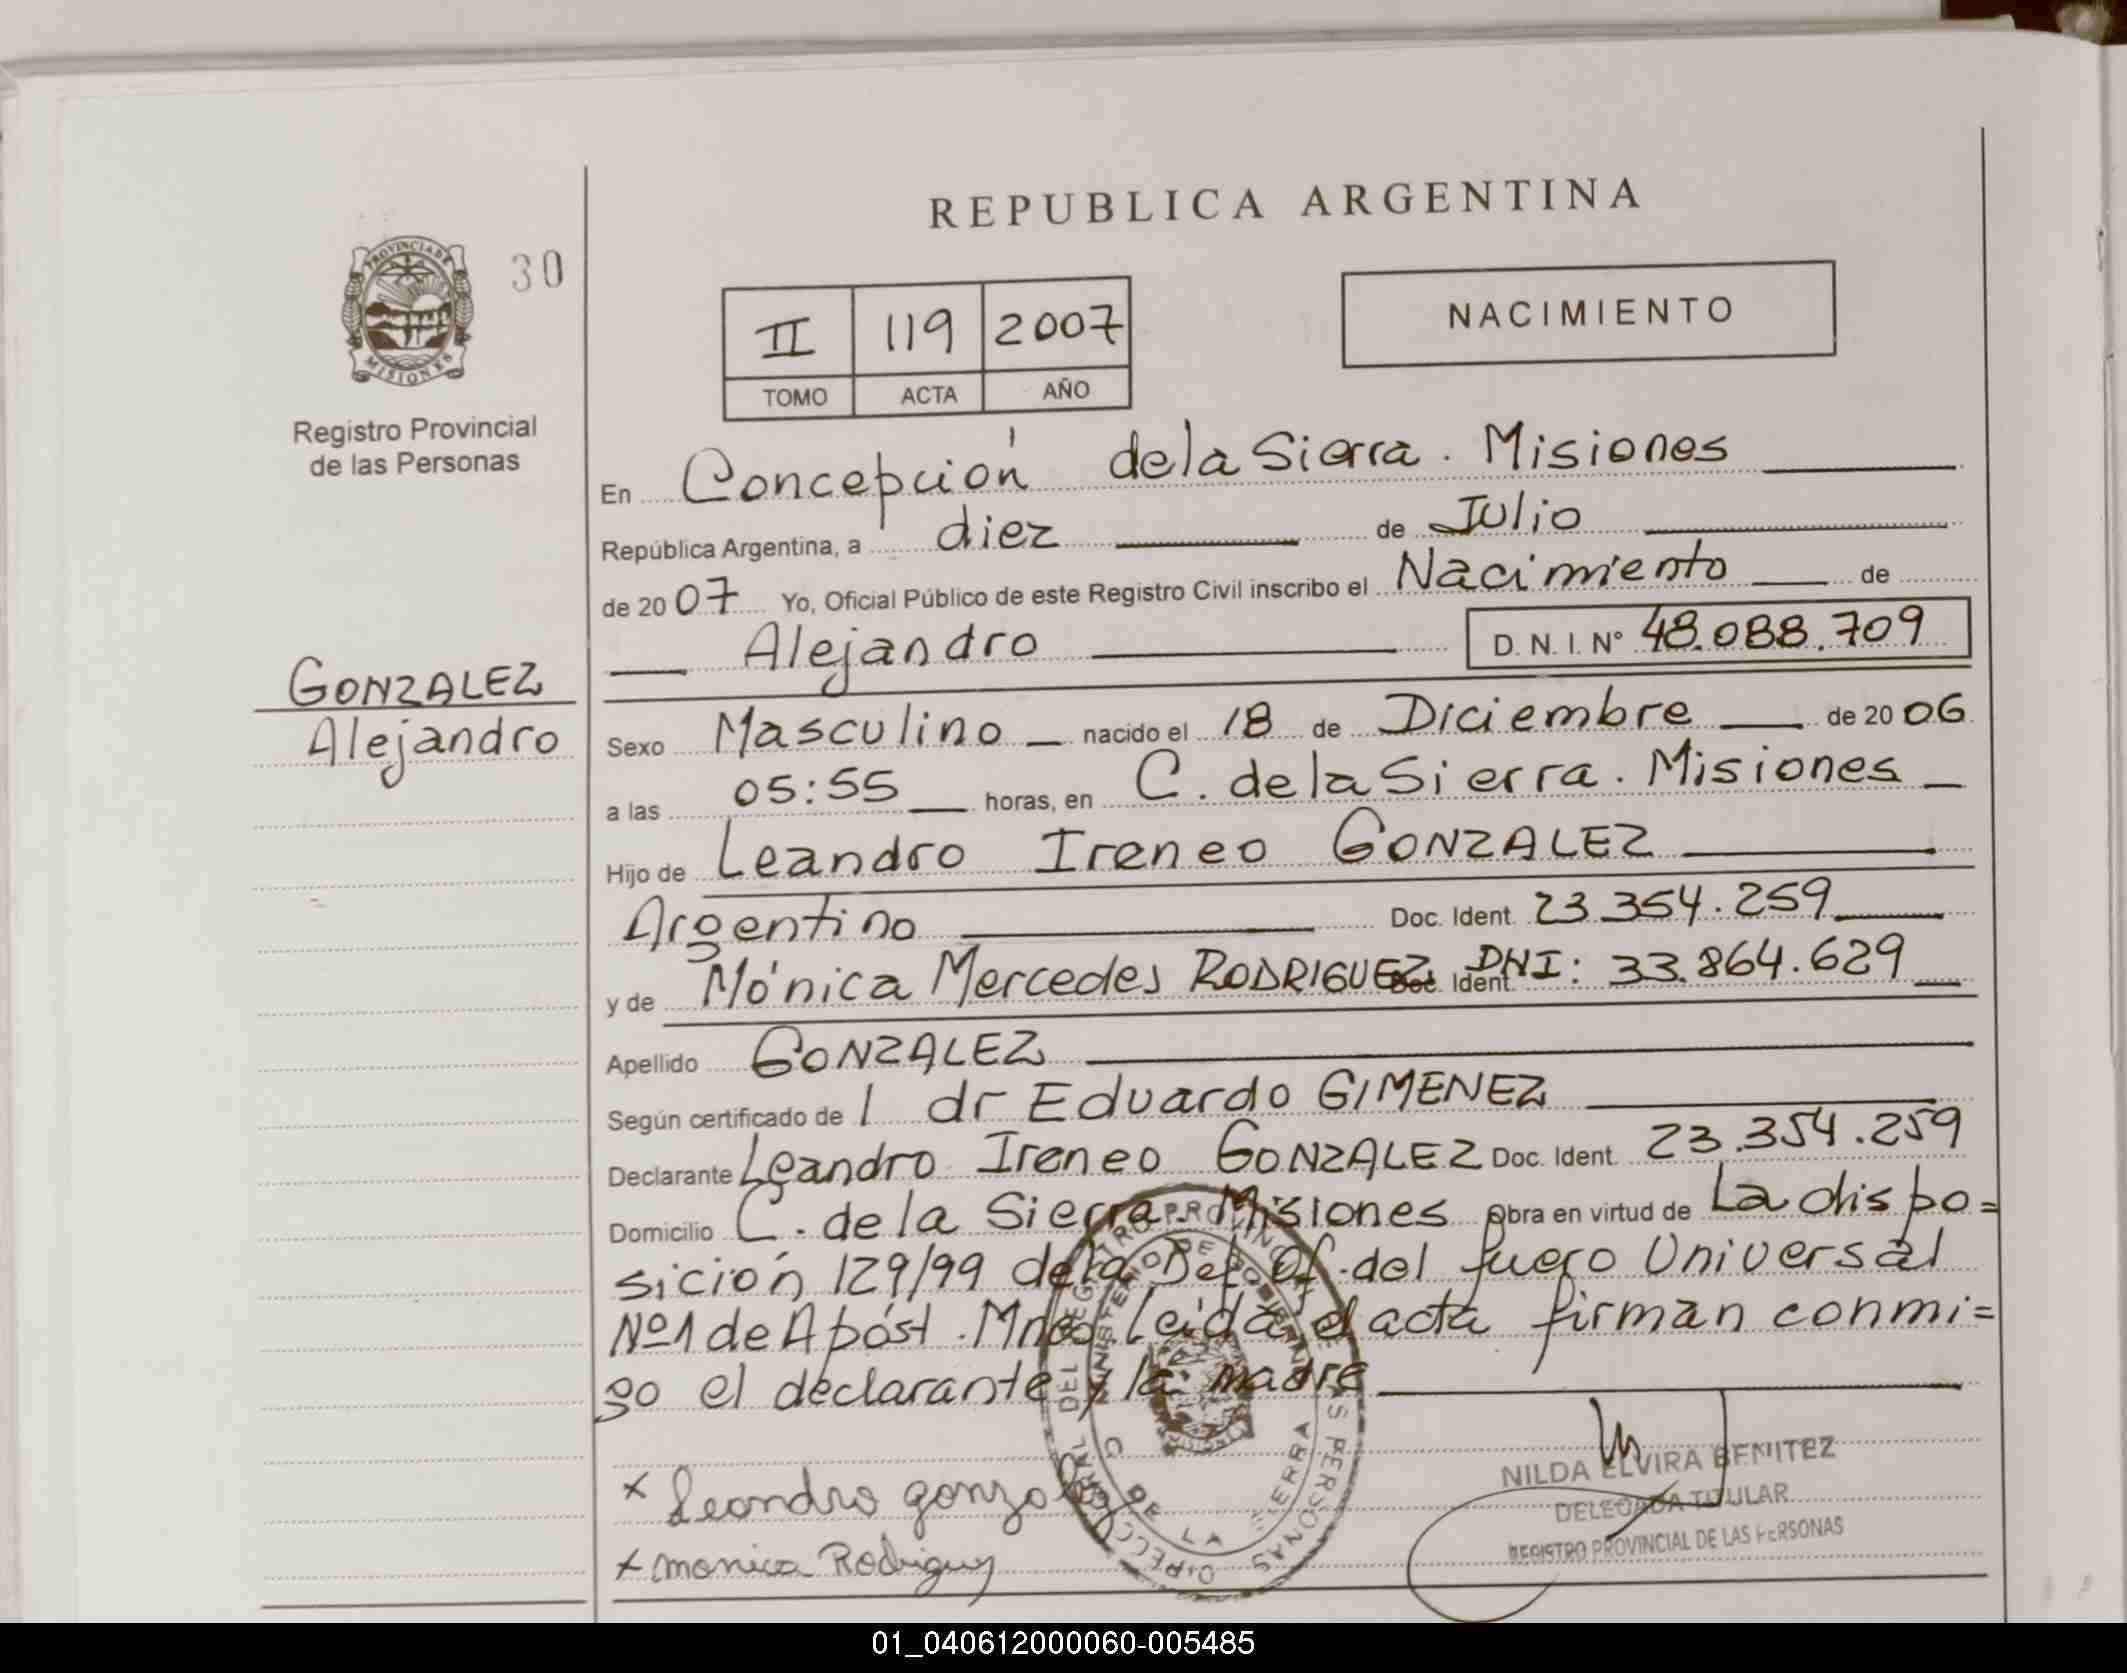 REPUBLICA ARGENTINA
PROVINCIA DE
MISIONES
30
Registro Provincial
de las Personas
II 119 2007
TOMO ACTA AÑO
NACIMIENTO
En Concepción de la Sierra. Misiones
República Argentina, a diez de Julio
de 20 07 Yo, Oficial Público de este Registro Civil inscribo el Nacimiento de
Alejandro D. N. I. Nº 48.088.709
GONZALEZ
Alejandro
Sexo Masculino nacido el 18 de Diciembre de 20 06
a las 05:55 horas, en C. de la Sierra. Misiones
Hijo de Leandro Ireneo GONZALEZ
Argentino Doc. Ident. 23.354.259
y de Mónica Mercedes RODRIGUEZ Doc. Ident. DNI: 33.864.629
Apellido GONZALEZ
Según certificado de l dr Eduardo GIMENEZ
Declarante Leandro Ireneo GONZALEZ Doc. Ident. 23.354.259
Domicilio C. de la Sierra. Misiones Obra en virtud de La dispo=
sición 129/99 de la Def. Of. del fuero Universal
Nº1 de Apóst. Mnes Leida el acta firman conmi=
go el declarante y la madre
x Leandro gonzalez
x monica Rodriguez
DIRECCION GENERAL DEL REGISTRO PROVINCIAL DE LAS PERSONAS
MINISTERIO DE GOBIERNO
C. DE LA SIERRA
NILDA ELVIRA BENITEZ
DELEGADA TITULAR
REGISTRO PROVINCIAL DE LAS PERSONAS
01_040612000060-005485